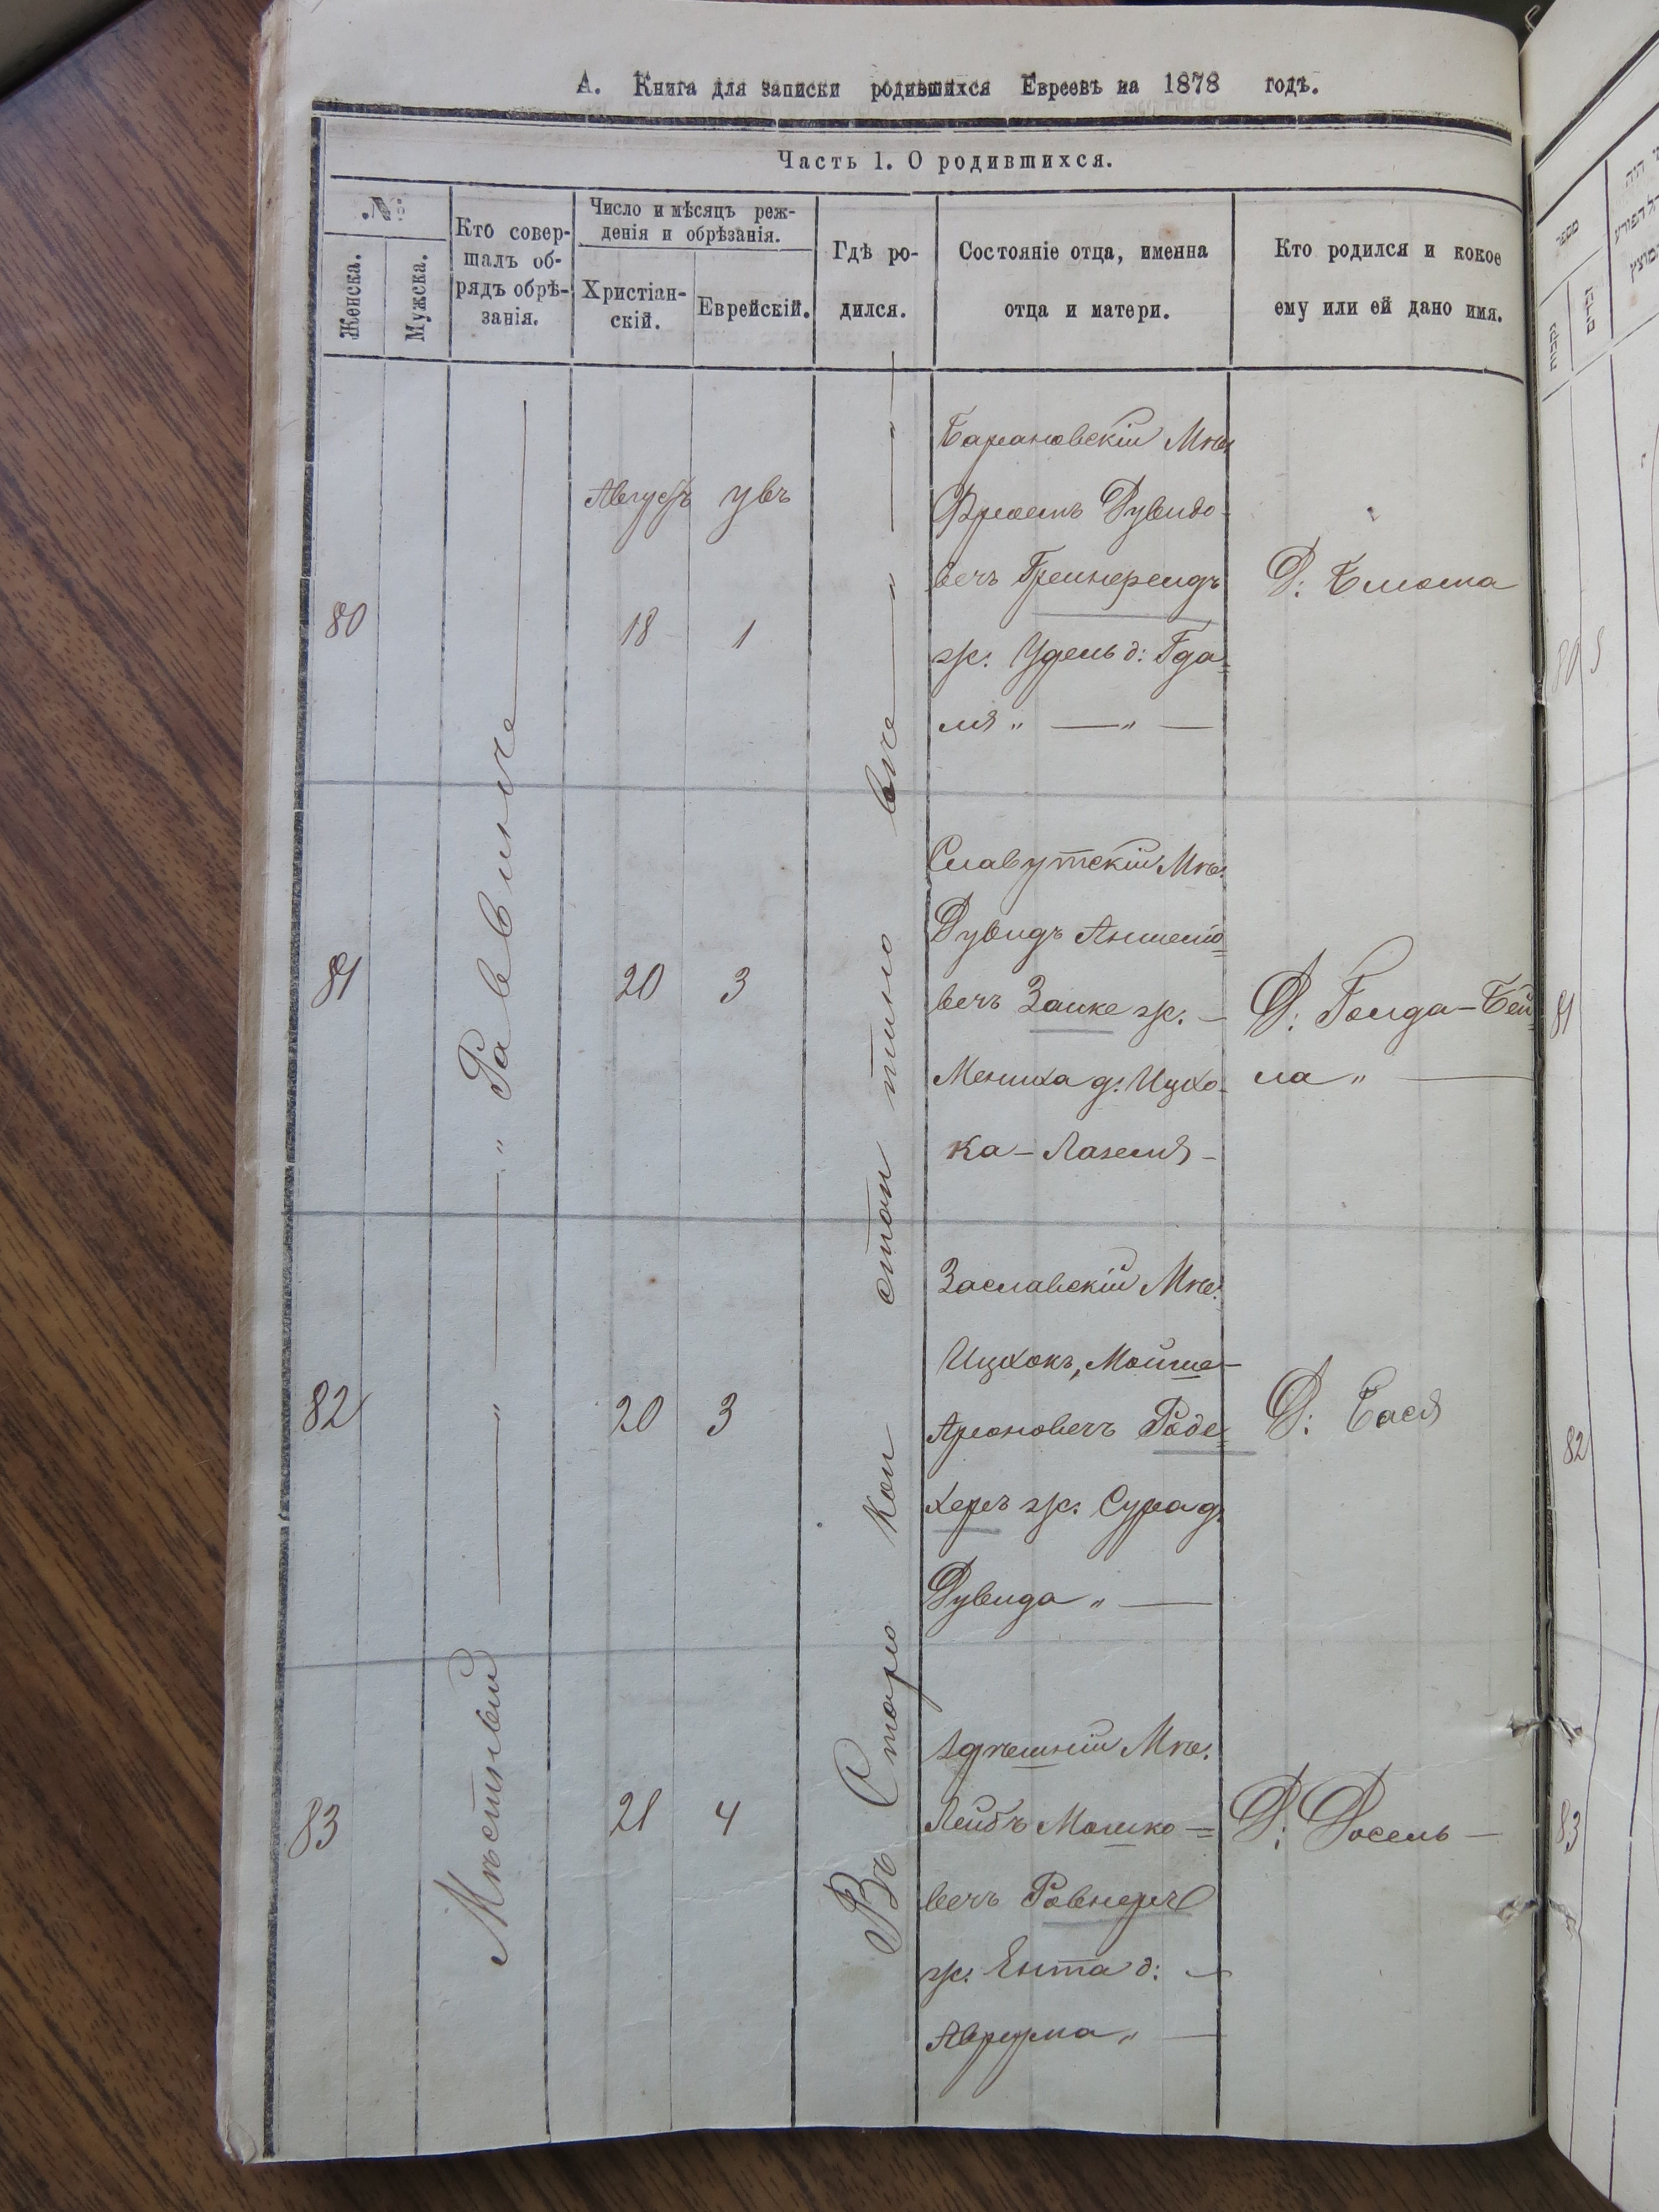 А. Книга для записки родившихся Евреевъ на 1878 годъ.
Часть 1. О родившихся.
№
Женска.
Мужска.
Кто совер-
шалъ об-
рядъ обрѣ-
занія.
Число и мѣсяцъ реж-
денія и обрѣзанія.
Христіан-
скій.
Еврейскій.
Гдѣ ро-
дился.
Состояніе отца, именна
отца и матери.
Кто родился и кокое
ему или ей дано имя.
Мѣстный — " — " Раввинъ
Въ Старо Кон стан тино вѣ — " — " —
80
Августъ
18
1
Барановскій Мѣщ.
Фроемъ Дувидо-
вечъ Грейнерейдъ
ж: Удель д: Гда=
ля " — " —
Д: Блюма
81
20
3
Славутскій Мѣщ:
Дувидъ Аншело=
вечъ Заике ж: —
Мениха д: Ицхо-
ка - Лазеля -
Д: Голда - Бей=
ла " —
82
20
3
Заславскій Мѣщ:
Ицхокъ, Мойше-
Ароновечъ Раде=
херъ ж: Сура д:
Дувида " —
Д: Бася
83
21
4
Здѣшній Мѣщ.
Лейбъ Мошко=
вечъ Ровнеръ
ж: Ента д: —
Аврума " —
Д: Досель —
80
81
82
83